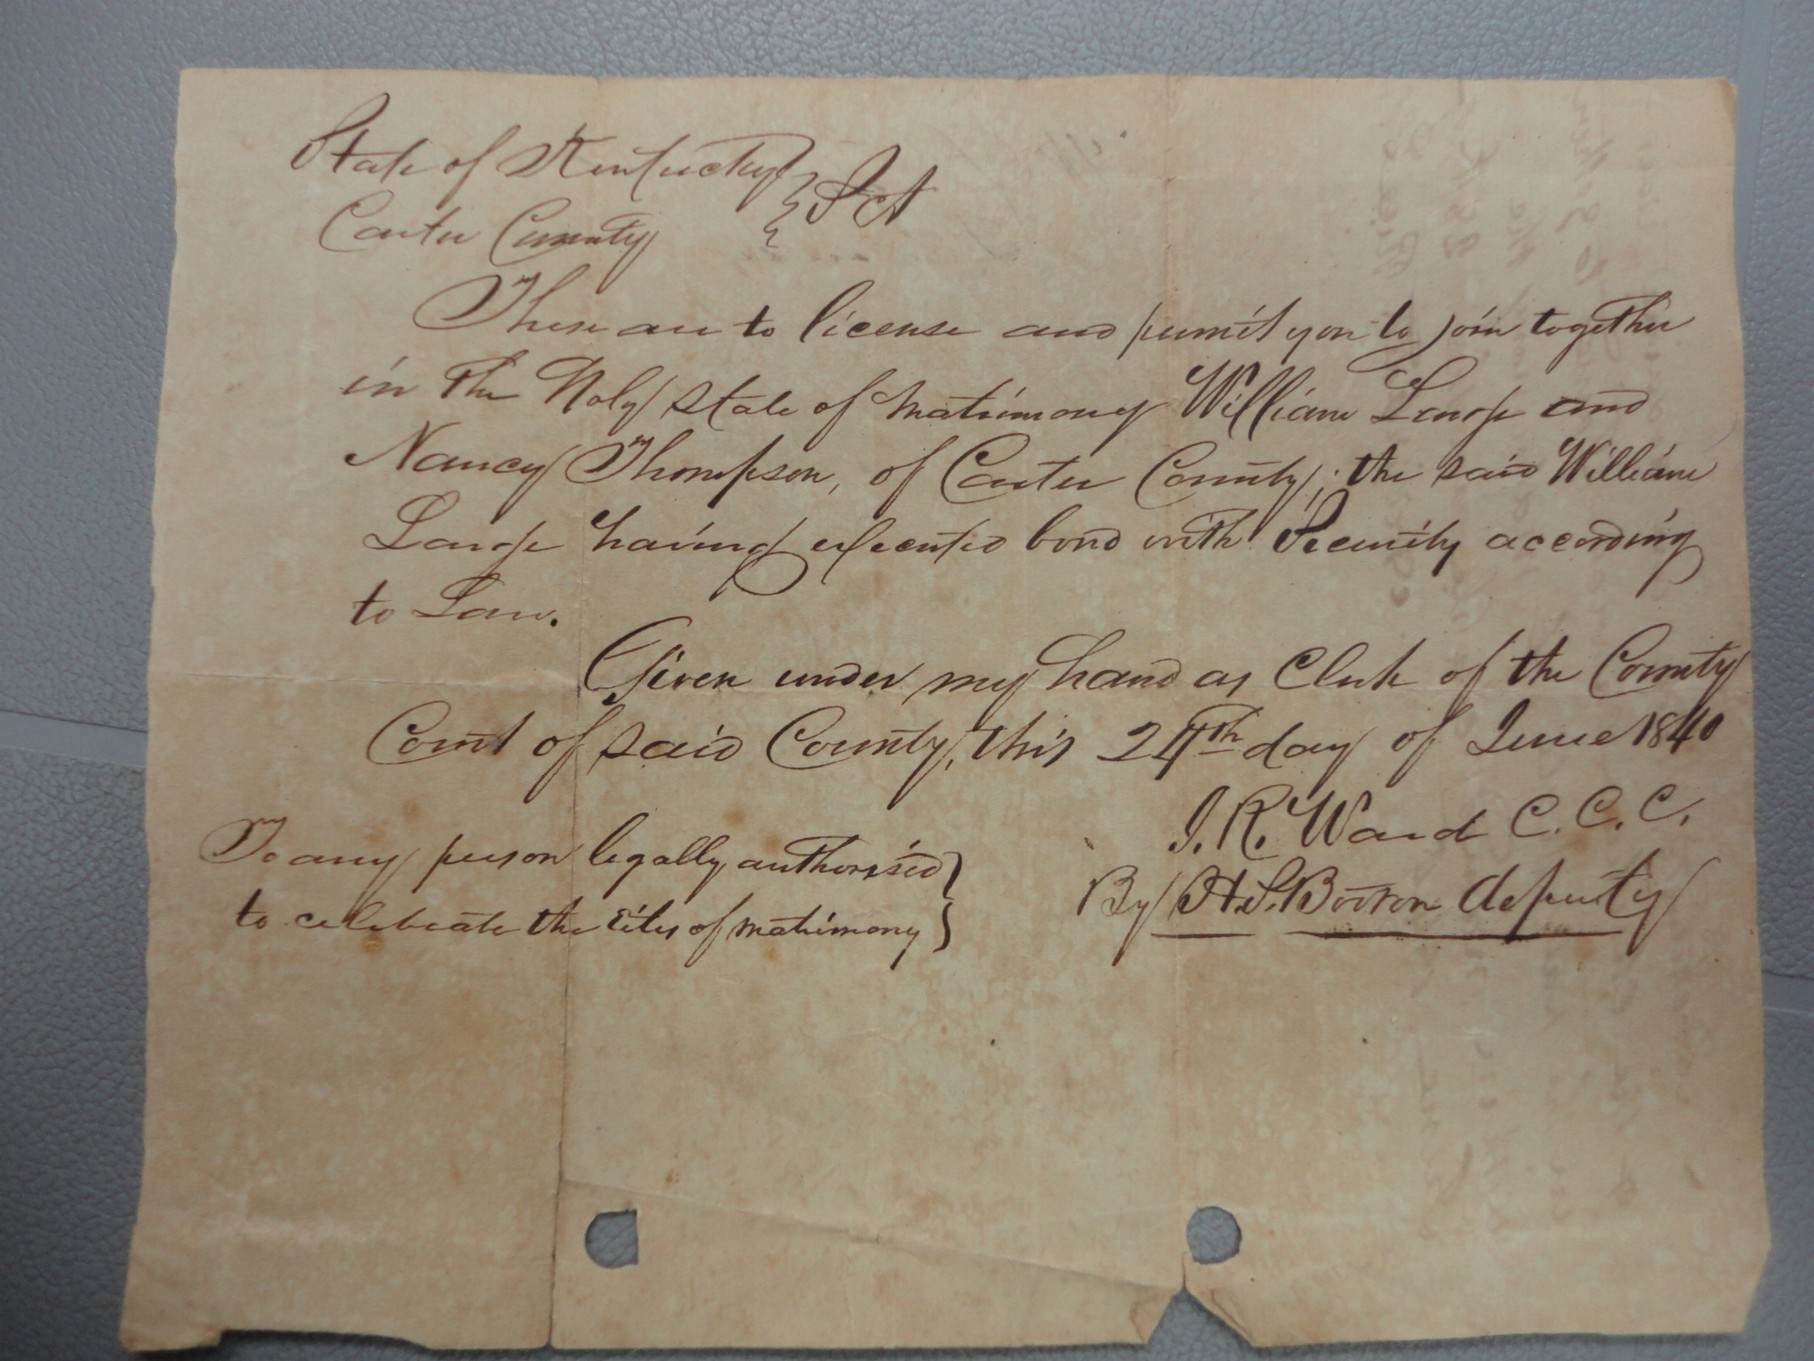 State of Kentucky
Carter County } Sct
These are to license and permit you to join together
in the Holy state of matrimony William Large and
Nancy Thompson, of Carter County; the said William
Large having executed bond with Security according
to Law.
Given under my hand as Clerk of the County
Court of said County, this 24th day of June 1840
J. R. Ward C. C. C.
By H. S. Booton deputy
To any person legally authorised }
to celebrate the rites of matrimony }